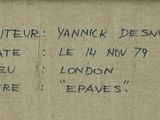 UTEUR: YANNICK DESNO
ATE : LE 14 NOV 79
EU : LONDON
RE : "EPAVES".